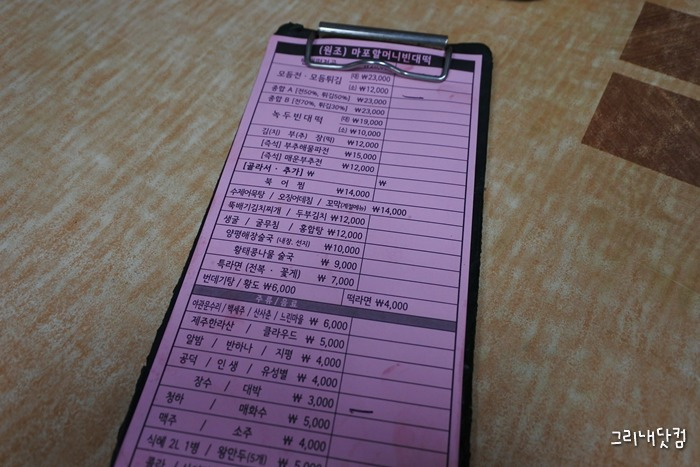 (원조) 마포할머니빈대떡
(대) ₩23,000
모듬전 · 모듬튀김 (소) ₩12,000
종합 A [전50%, 튀김50%] ₩23,000
종합 B [전70%, 튀김30%] ₩23,000
녹두빈대떡 (대) ₩19,000
(소) ₩10,000
김(치) 부(추) 장(떡) ₩12,000
[즉석] 부추해물파전 ₩15,000
[즉석] 매운부추전 ₩12,000
[골라서 · 추가] ₩ ₩
북 어 찜 ₩14,000
수제어묵탕 / 오징어데침 / 꼬막(계절메뉴) ₩14,000
뚝배기김치찌개 / 두부김치 ₩12,000
생굴 / 굴무침 / 홍합탕 ₩12,000
양평해장술국 (내장, 선지) ₩10,000
황태콩나물 술국 ₩ 9,000
특라면 (전복 · 꽃게) ₩ 7,000
번데기탕 / 황도 ₩6,000 떡라면 ₩4,000
주 류 / 음 료
야관문수리 / 백세주 / 산사춘 / 느린마을 ₩ 6,000
제주한라산 / 클라우드 ₩ 5,000
알밤 / 반하나 / 지평 ₩ 4,000
공덕 / 인생 / 유성별 ₩ 4,000
장수 / 대박 ₩ 3,000
청하 / 매화수 ₩ 5,000
맥주 / 소주 ₩ 4,000
식혜 2L 1병 / 왕만두(5개) ₩ 5,000
콜라 /
그리내닷컴